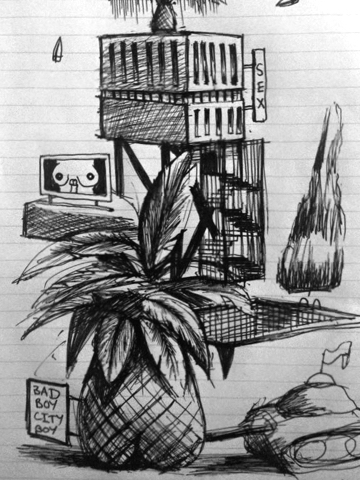 SEX
BAD
BOY
CITY
BOY